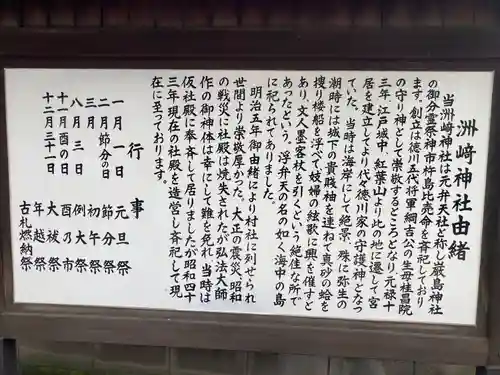 洲崎神社由緒
当洲崎神社は元弁天社と称し厳島神社
の御分霊祭神市杵島比売命を斉祀しており
ます。創立は徳川五代将軍綱吉公の生母桂昌院
の守り神として崇敬するところとなり、元禄十
三年、江戸城中、紅葉山より此の地に遷して宮
居を建立してより代々徳川家の守護神となつ
ていた。当時は海岸にして絶景、殊に弥生の
潮時には城下の貴賤袖を連ねて真砂の蛤を
捜り楼船を浮べて妓婦の絃歌に興を催すと
あり、文人墨客杖を引くという絶佳な所で
あったという。浮弁天の名の如く海中の島
に祀られてありました。
明治五年御由緒により村社に列せられ
世間より崇敬厚かった。大正の震災、昭和
の戦災に社殿は焼失されたが弘法大師
作の御神体は幸にして難を免れ、当時は
仮社殿に奉斉して居りましたが昭和四十
三年現在の社殿を造営し斉祀して現
在に至っております。
行事
一月一日 元旦祭
二月節分の日 節分祭
三月 初午祭
八月三日 例祭
十一月酉の日 酉乃市
十二月三十一日 大祓祭
年越祭
古札燃納祭